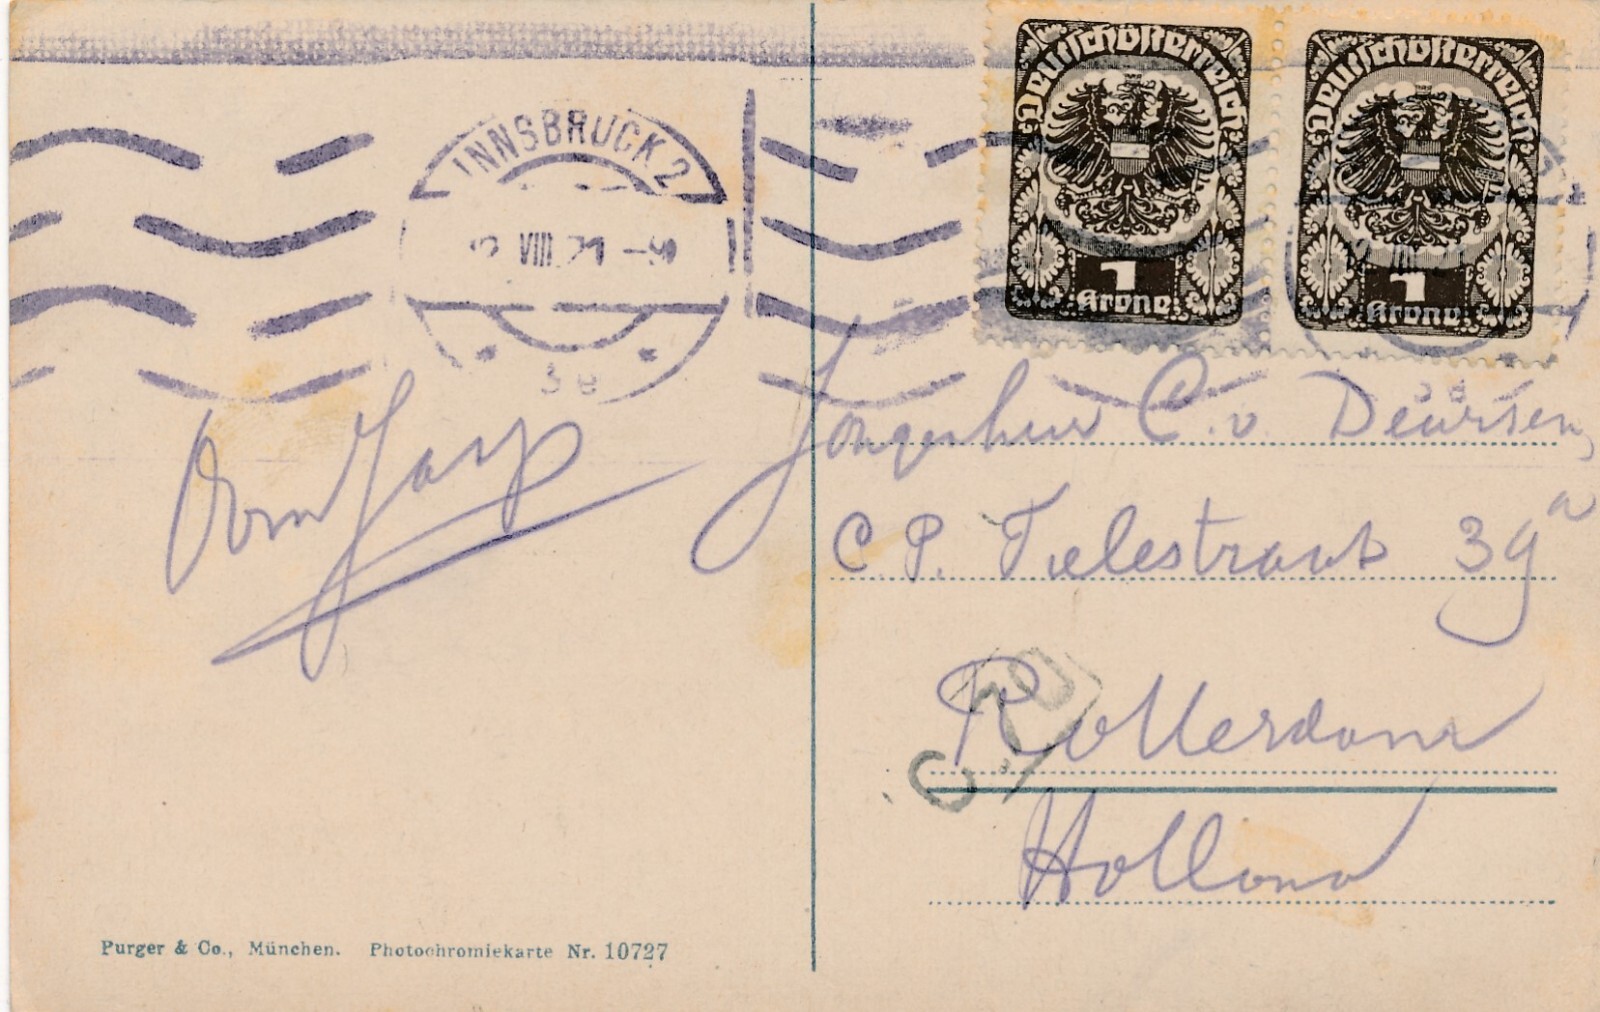 Deutschösterreich
1
Krone
Deutschösterreich
1
Krone
INNSBRUCK 2
VIII. 21 -9
3e
Oom Jasp
Jongenheer C. v. Deursen,
C. P. Tielestraat 39a
Rotterdam
Holland
Purger & Co., München. Photochromiekarte Nr. 10727